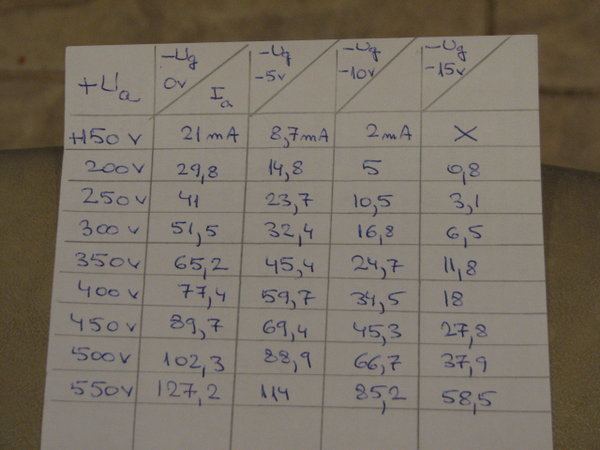 +Ua -Ug 0v Ia -Ug -5v -Ug -10v -Ug -15v
+150v 21mA 8,7mA 2mA X
200v 29,8 14,8 5 0,8
250v 41 23,7 10,5 3,1
300v 51,5 32,4 16,8 6,5
350v 65,2 45,4 24,7 11,8
400v 77,4 59,7 34,5 18
450v 89,7 69,4 45,3 27,8
500v 102,3 88,9 66,7 37,9
550v 127,2 114 85,2 58,5